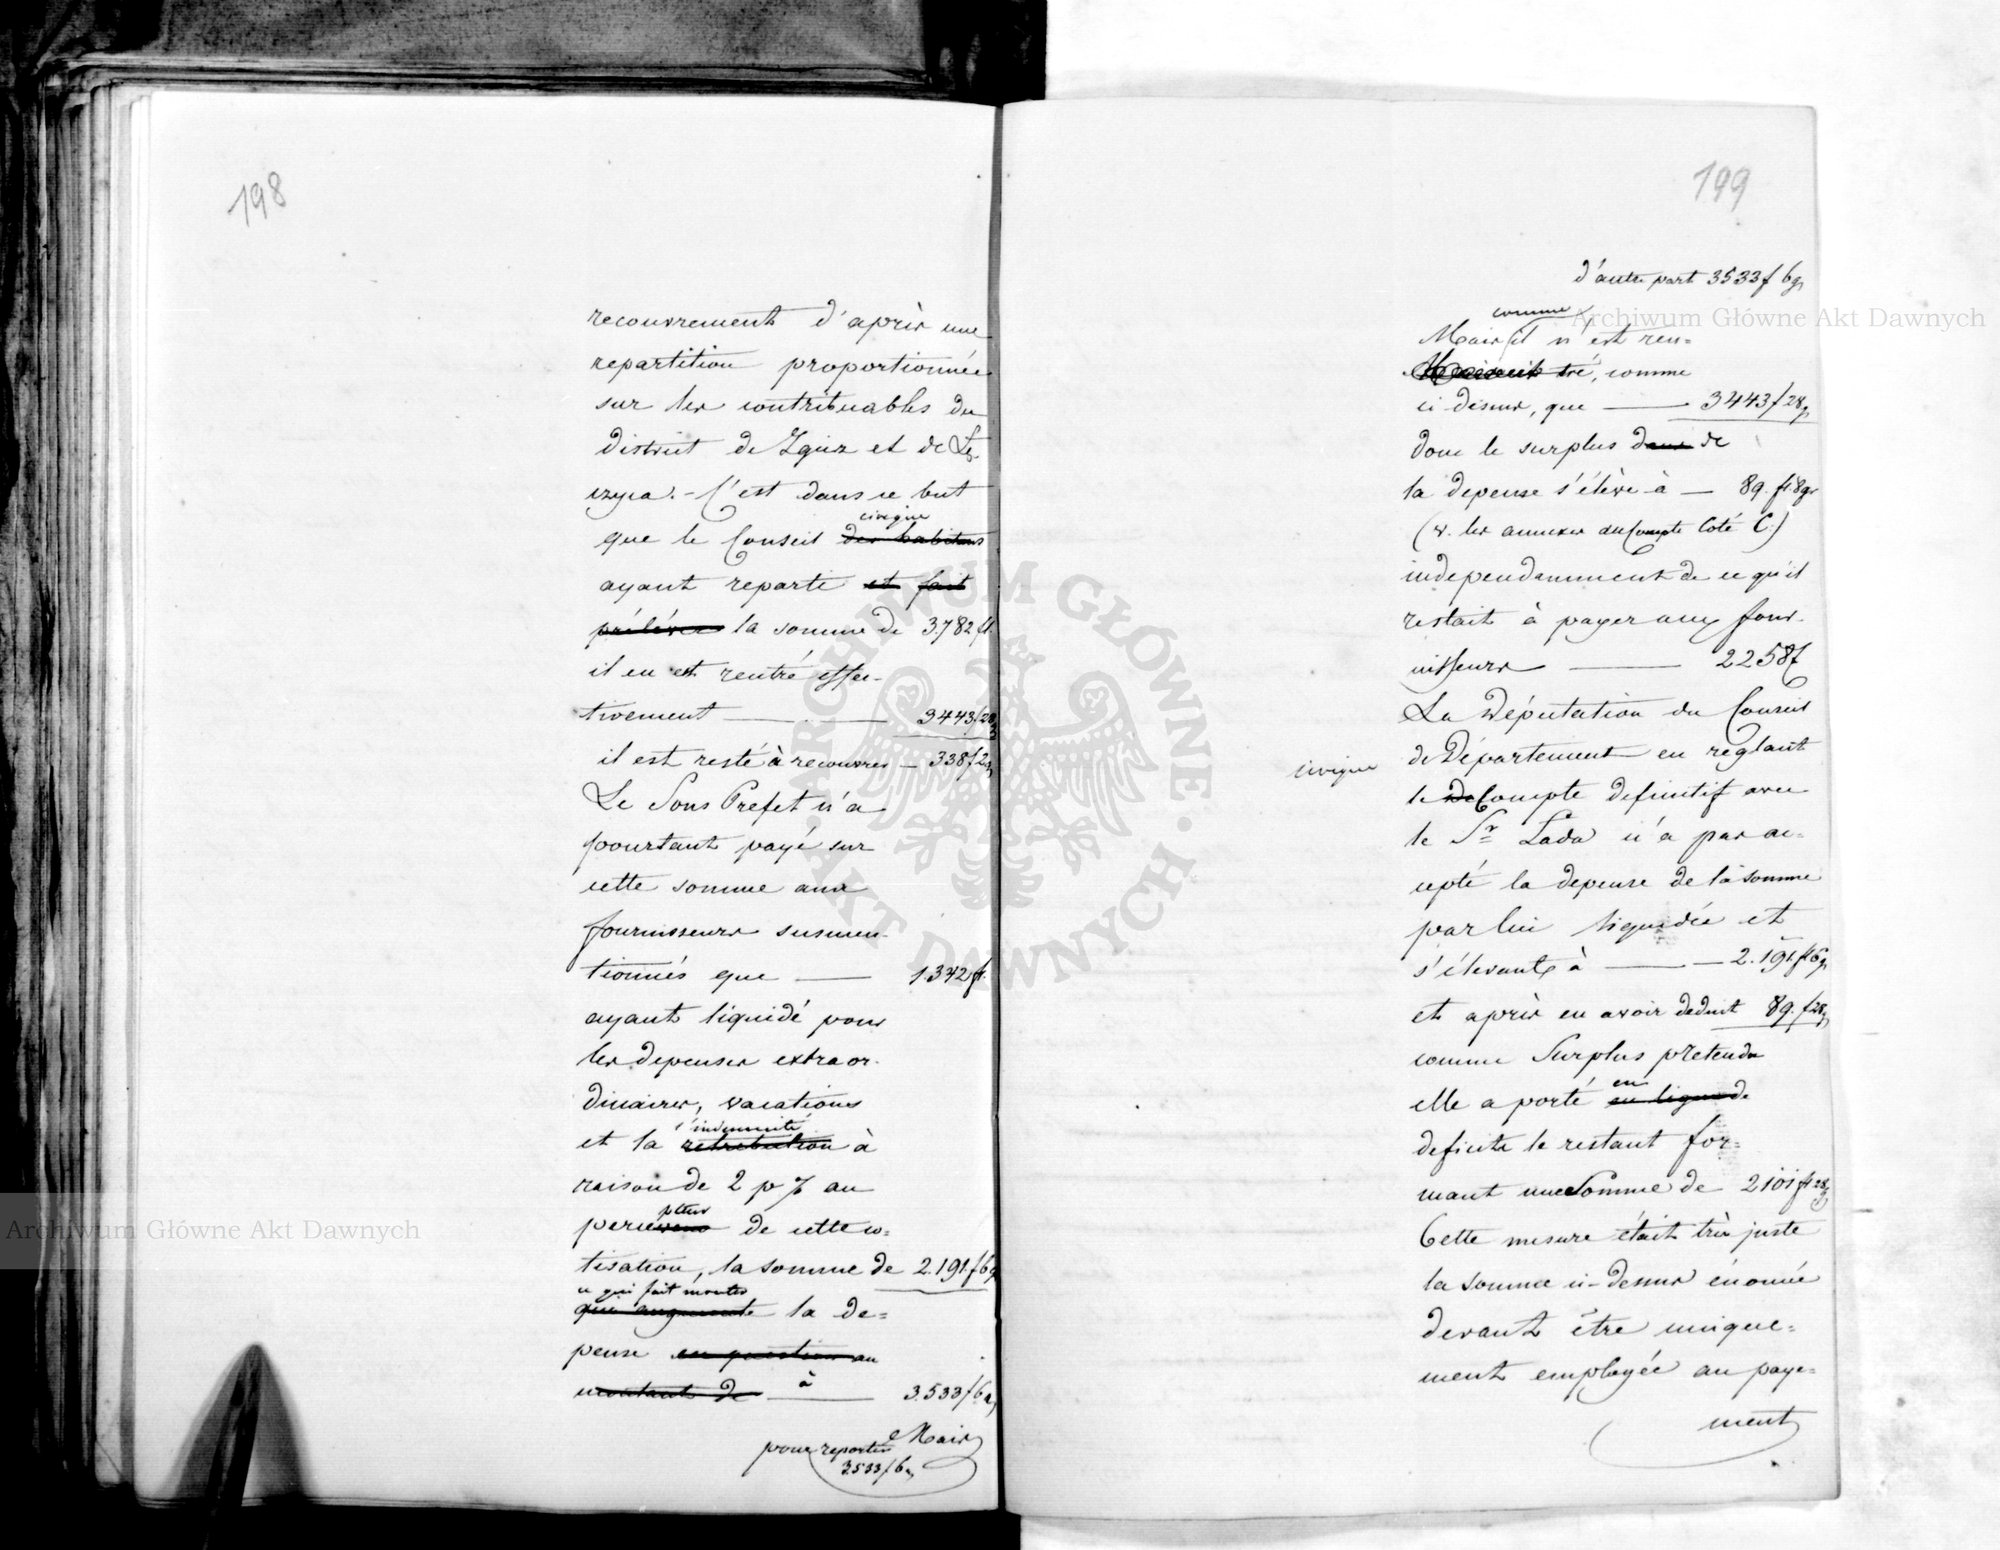 198
recouvrement d'après une
repartition proportionnée
sur les contribuables du
district de Zgierz et de Łę-
czyca. - C'est dans ce but
civique
que le Conseil des habitans
ayant reparti et fait
prélever la somme de 3.782 fl.
il en est rentré effec-
tivement — 3443 f 28 g
il est resté à recouvrer — 338 f 2 g
Le Sous Prefet n'a
pourtant payé sur
cette somme aux
fournisseurs susmen-
tionnés que — 1.342 fl.
ayant liquidé pour
les depenses extraor-
dinaires, vacations
l'indemnité
et la retribution à
raison de 2 p % au
pteur
perceveur de cette co=
tisation, la somme de 2.191 f 6 g
ce qui fait monter
que augmente la de=
pense en question au
montant de à — 3.533 f 6 g
Mais
pour reporter
3533 f 6 g
199
d'autre part 3533 f 6 g
comme
Mais il n'est ren=
tré, comme
ci-dessus, que — 3443 f 28 g
donc le surplus dans de
la depense s'élève à — 89. fl. 8 gr
(v. les annexes du Compte Coté C.)
independamment de ce qu'il
restait à payer aux four-
nisseurs — 2258 f
La Députation du Conseil
de Département en réglant
civique
le de Compte definitif avec
le Sr Lada n'a pas ac=
cepté la depense de la somme
par lui liquidée et
s'élevant à — 2.191 fl 6 g
et après en avoir deduit 89. f 28 g
comme Surplus pretendu
en
elle a porté en ligne de
deficite le restant for=
mant une Somme de 2101 fl 28 g
Cette mesure était très juste
la somme ci-dessus énoncée
devant être unique=
ment employée au paye=
ment
Archiwum Główne Akt Dawnych
Archiwum Główne Akt Dawnych
ARCHIWUM GŁÓWNE · AKT DAWNYCH ·